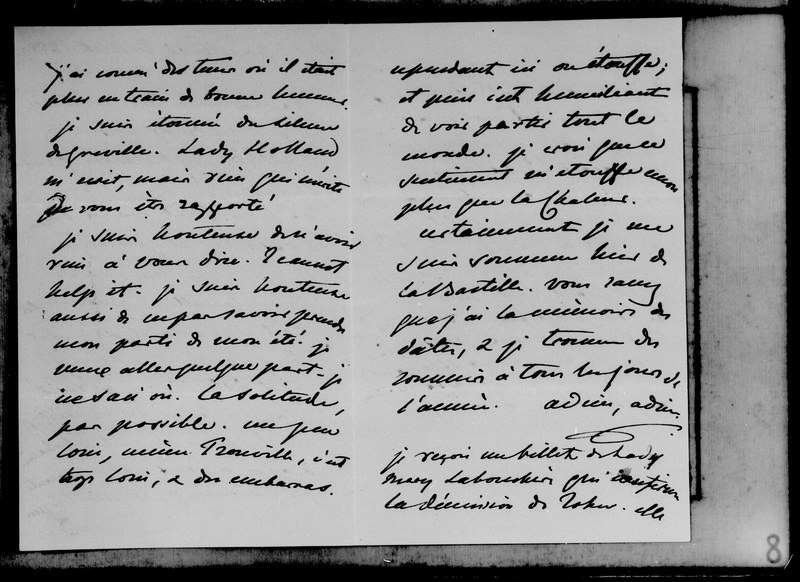 j'ai connu des tems où il était
plus en train de bonne humeur.
je suis étonnée du silence
de Greville. Lady Holland
m'écrit, mais rien qui mérite
de vous être rapporté
je suis honteuse de n'avoir
rien à vous dire. I cannot
help it. je suis honteuse
aussi de ne pas savoir prendre
mon parti de mon été. je
veux aller quelque part. je
ne sais où. la solitude,
pas possible. un peu
loin, même Trouville, c'est
trop loin, & des embarras.
cependant ici on étouffe;
et puis c'est humiliant
de voir partir tout le
monde. je crois que ce
sentiment m'étouffe
plus que la chaleur.
certainement je me
suis souvenue hier de
la Bastille. vous savez
que j'ai la mémoire des
dâtes, & je trouve des
souvenirs à tous les jours de
l'année. adieu, adieu.
je reçois un billet de Lady
Mary Labouchere qui
la démission de John. elle
8